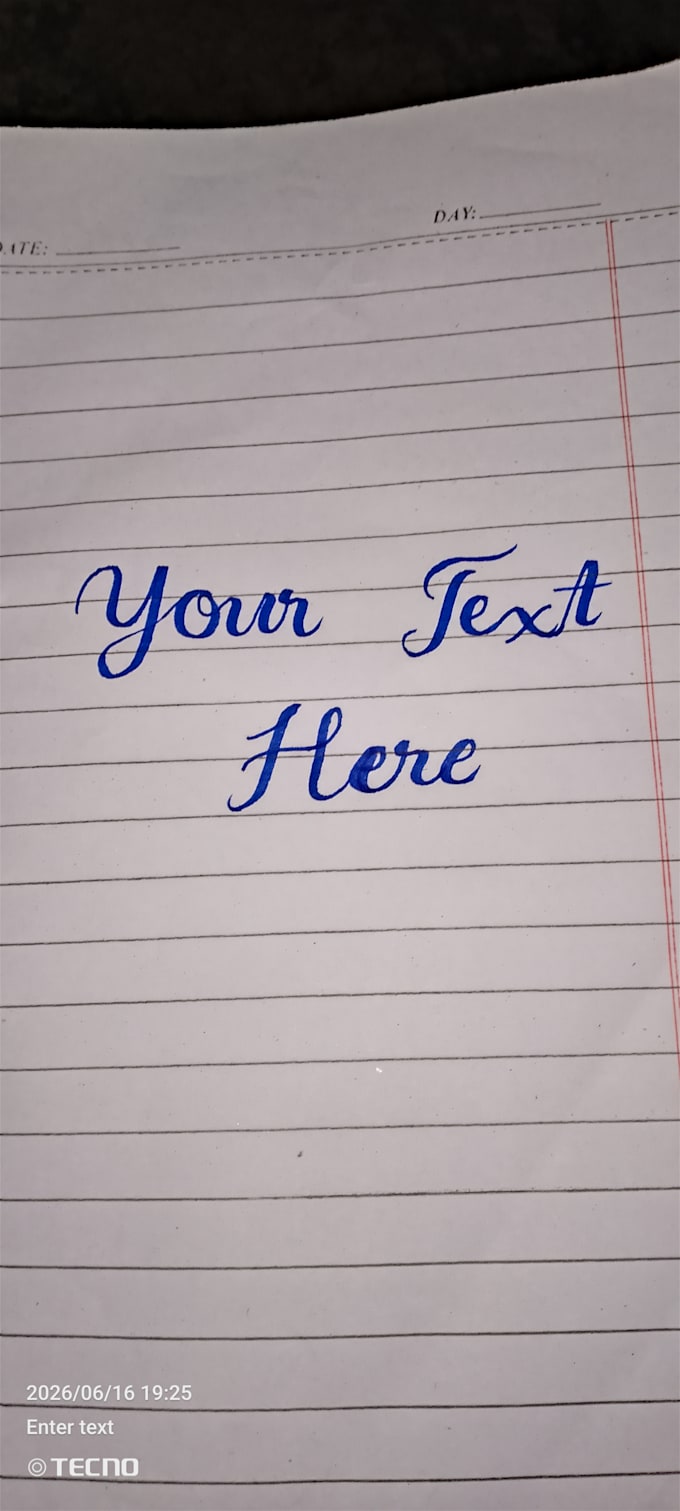 DAY:
DATE:
Your Text
Here
2026/06/16 19:25
Enter text
TECNO